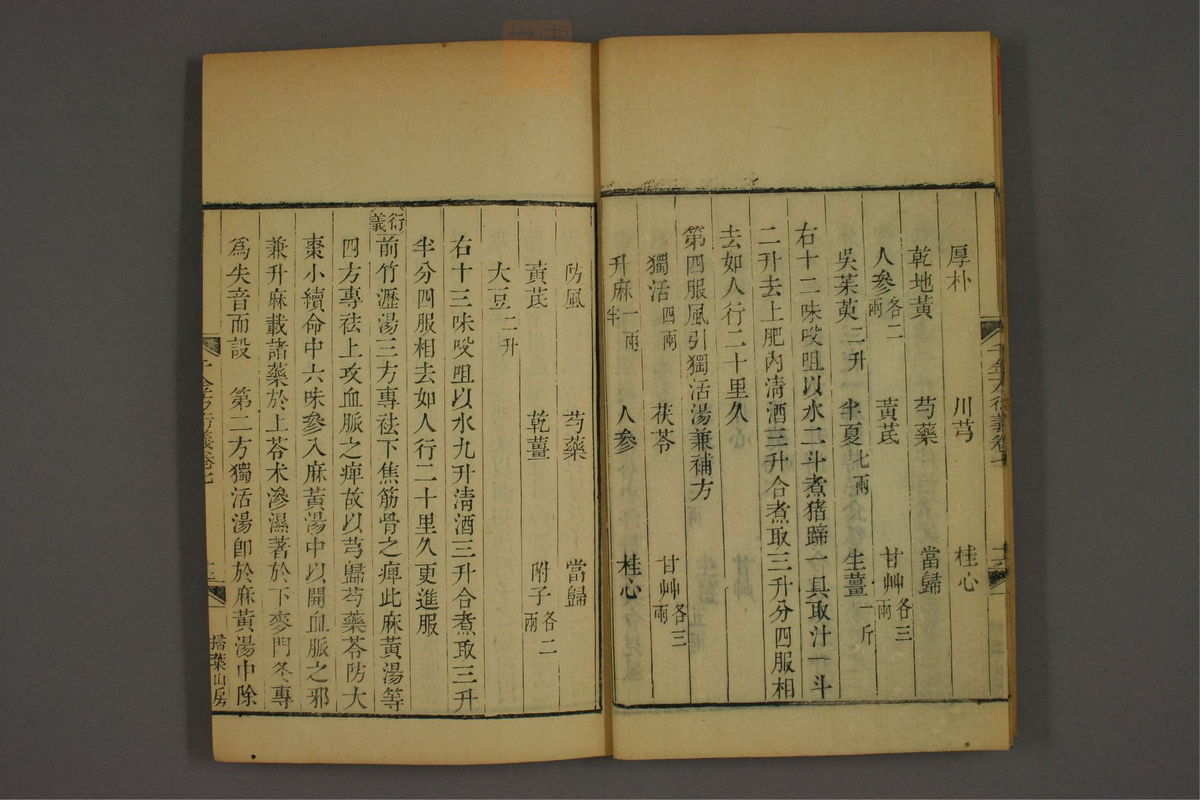 厚朴 川芎 桂心
乾地黃 芍藥 當歸
人參各二兩 黃芪 甘艸各三兩
吳茱萸二升 半夏七兩 生薑一斤
右十二味㕮咀以水二斗煮猪蹄一具取汁一斗
二升去上肥內清酒三升合煮取三升分四服相
去如人行二十里久
第四服風引獨活湯兼補方
獨活四兩 茯苓 甘艸各三兩
升麻一兩半 人參 桂心
防風 芍藥 當歸
黃芪 乾薑 附子各二兩
大豆二升
右十三味㕮咀以水九升清酒三升合煮取三升
半分四服相去如人行二十里久更進服
衍義前竹瀝湯三方專祛下焦筋骨之痺此麻黃湯等
四方專祛上攻血脈之痺故以芎歸芍藥苓防大
棗小續命中六味參入麻黃湯中以開血脈之邪
兼升麻載諸藥於上苓术滲濕著於下麥門冬專
爲失音而設 第二方獨活湯卽於麻黃湯中除
千金方衍義卷七
掃葉山房